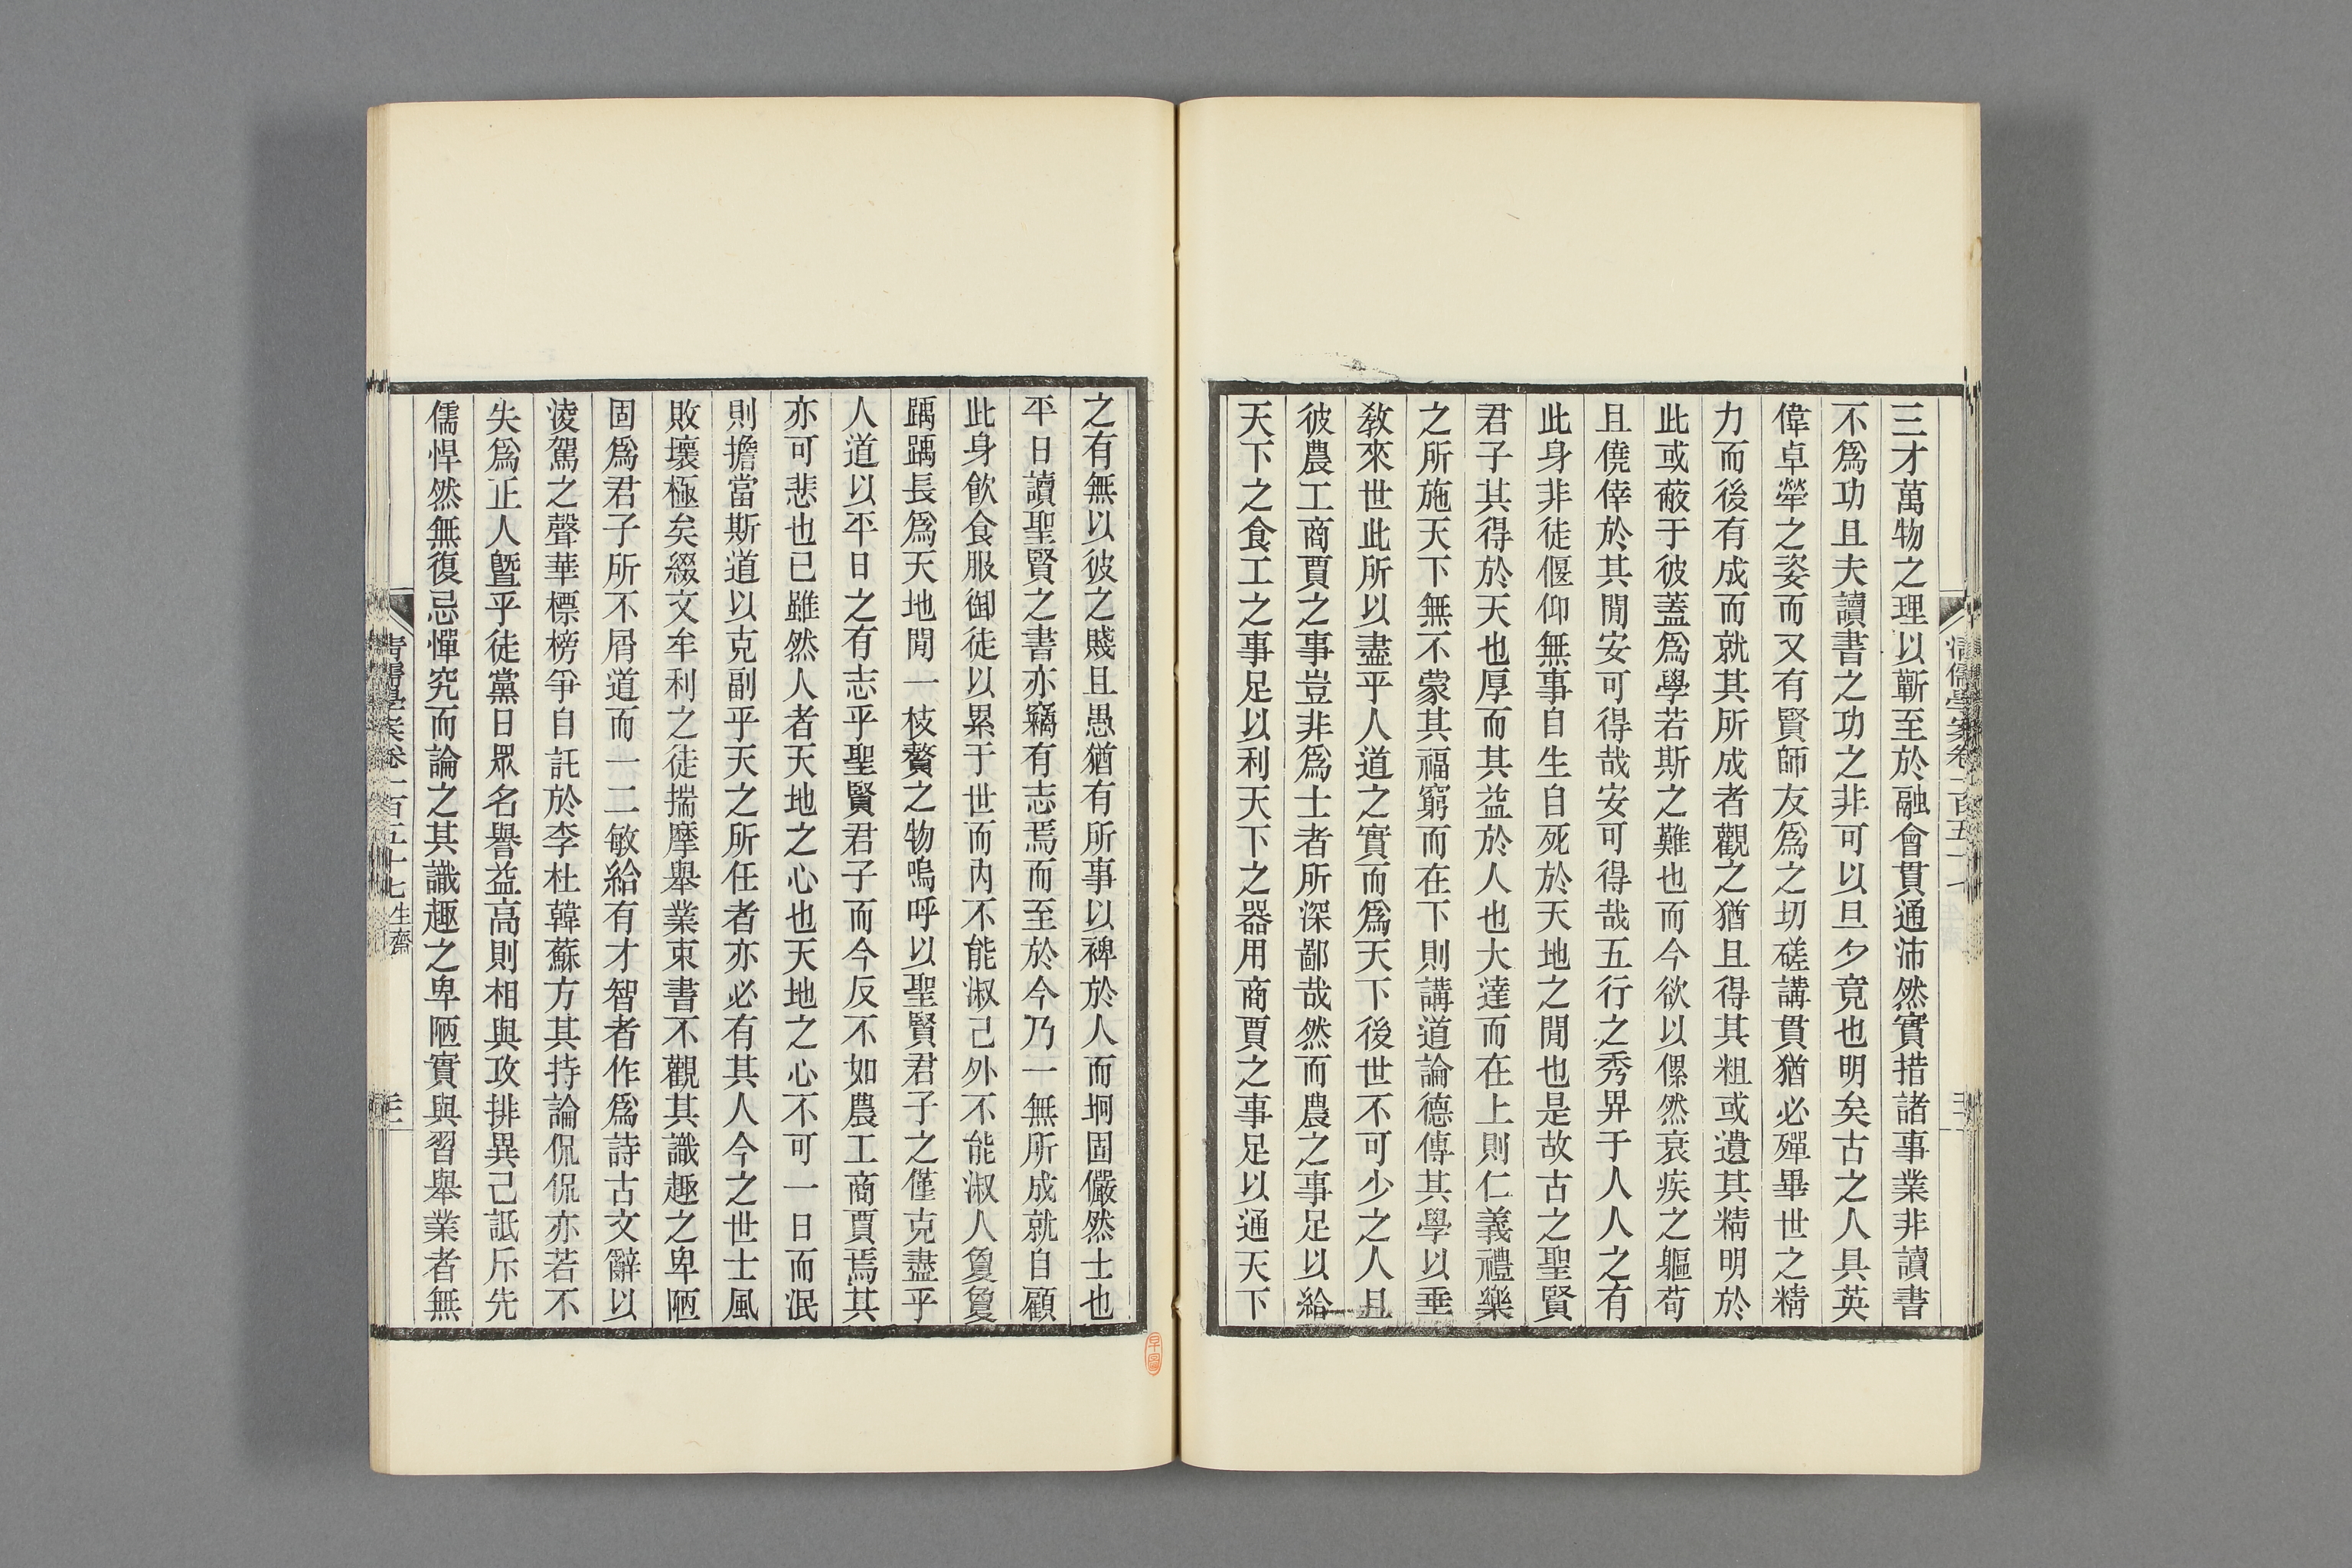 三才萬物之理以蘄至於融會貫通沛然實措諸事業非讀書
不爲功且夫讀書之功之非可以旦夕竟也明矣古之人具英
偉卓犖之姿而又有賢師友爲之切磋講貫猶必殫畢世之精
力而後有成而就其所成者觀之猶且得其粗或遺其精明於
此或蔽于彼蓋爲學若斯之難也而今欲以傫然衰疾之軀苟
且僥倖於其閒安可得哉安可得哉五行之秀畀于人人之有
此身非徒偃仰無事自生自死於天地之閒也是故古之聖賢
君子其得於天也厚而其益於人也大達而在上則仁義禮樂
之所施天下無不蒙其福窮而在下則講道論德傳其學以垂
敎來世此所以盡乎人道之實而爲天下後世不可少之人且
彼農工商賈之事豈非爲士者所深鄙哉然而農之事足以給
天下之食工之事足以利天下之器用商賈之事足以通天下
之有無以彼之賤且愚猶有所事以裨於人而坰固儼然士也
平日讀聖賢之書亦竊有志焉而至於今乃一無所成就自顧
此身飮食服御徒以累于世而內不能淑己外不能淑人敻敻
踽踽長爲天地閒一枝贅之物嗚呼以聖賢君子之僅克盡乎
人道以平日之有志乎聖賢君子而今反不如農工商賈焉其
亦可悲也已雖然人者天地之心也天地之心不可一日而泯
則擔當斯道以克副乎天之所任者亦必有其人今之世士風
敗壞極矣綴文牟利之徒揣摩舉業束書不觀其識趣之卑陋
固爲君子所不屑道而一二敏給有才智者作爲詩古文辭以
淩駕之聲華標榜爭自託於李杜韓蘇方其持論侃侃亦若不
失爲正人曁乎徒黨日眾名譽益高則相與攻排異己詆斥先
儒悍然無復忌憚究而論之其識趣之卑陋實與習舉業者無
清儒學案卷一百五十七 生齋